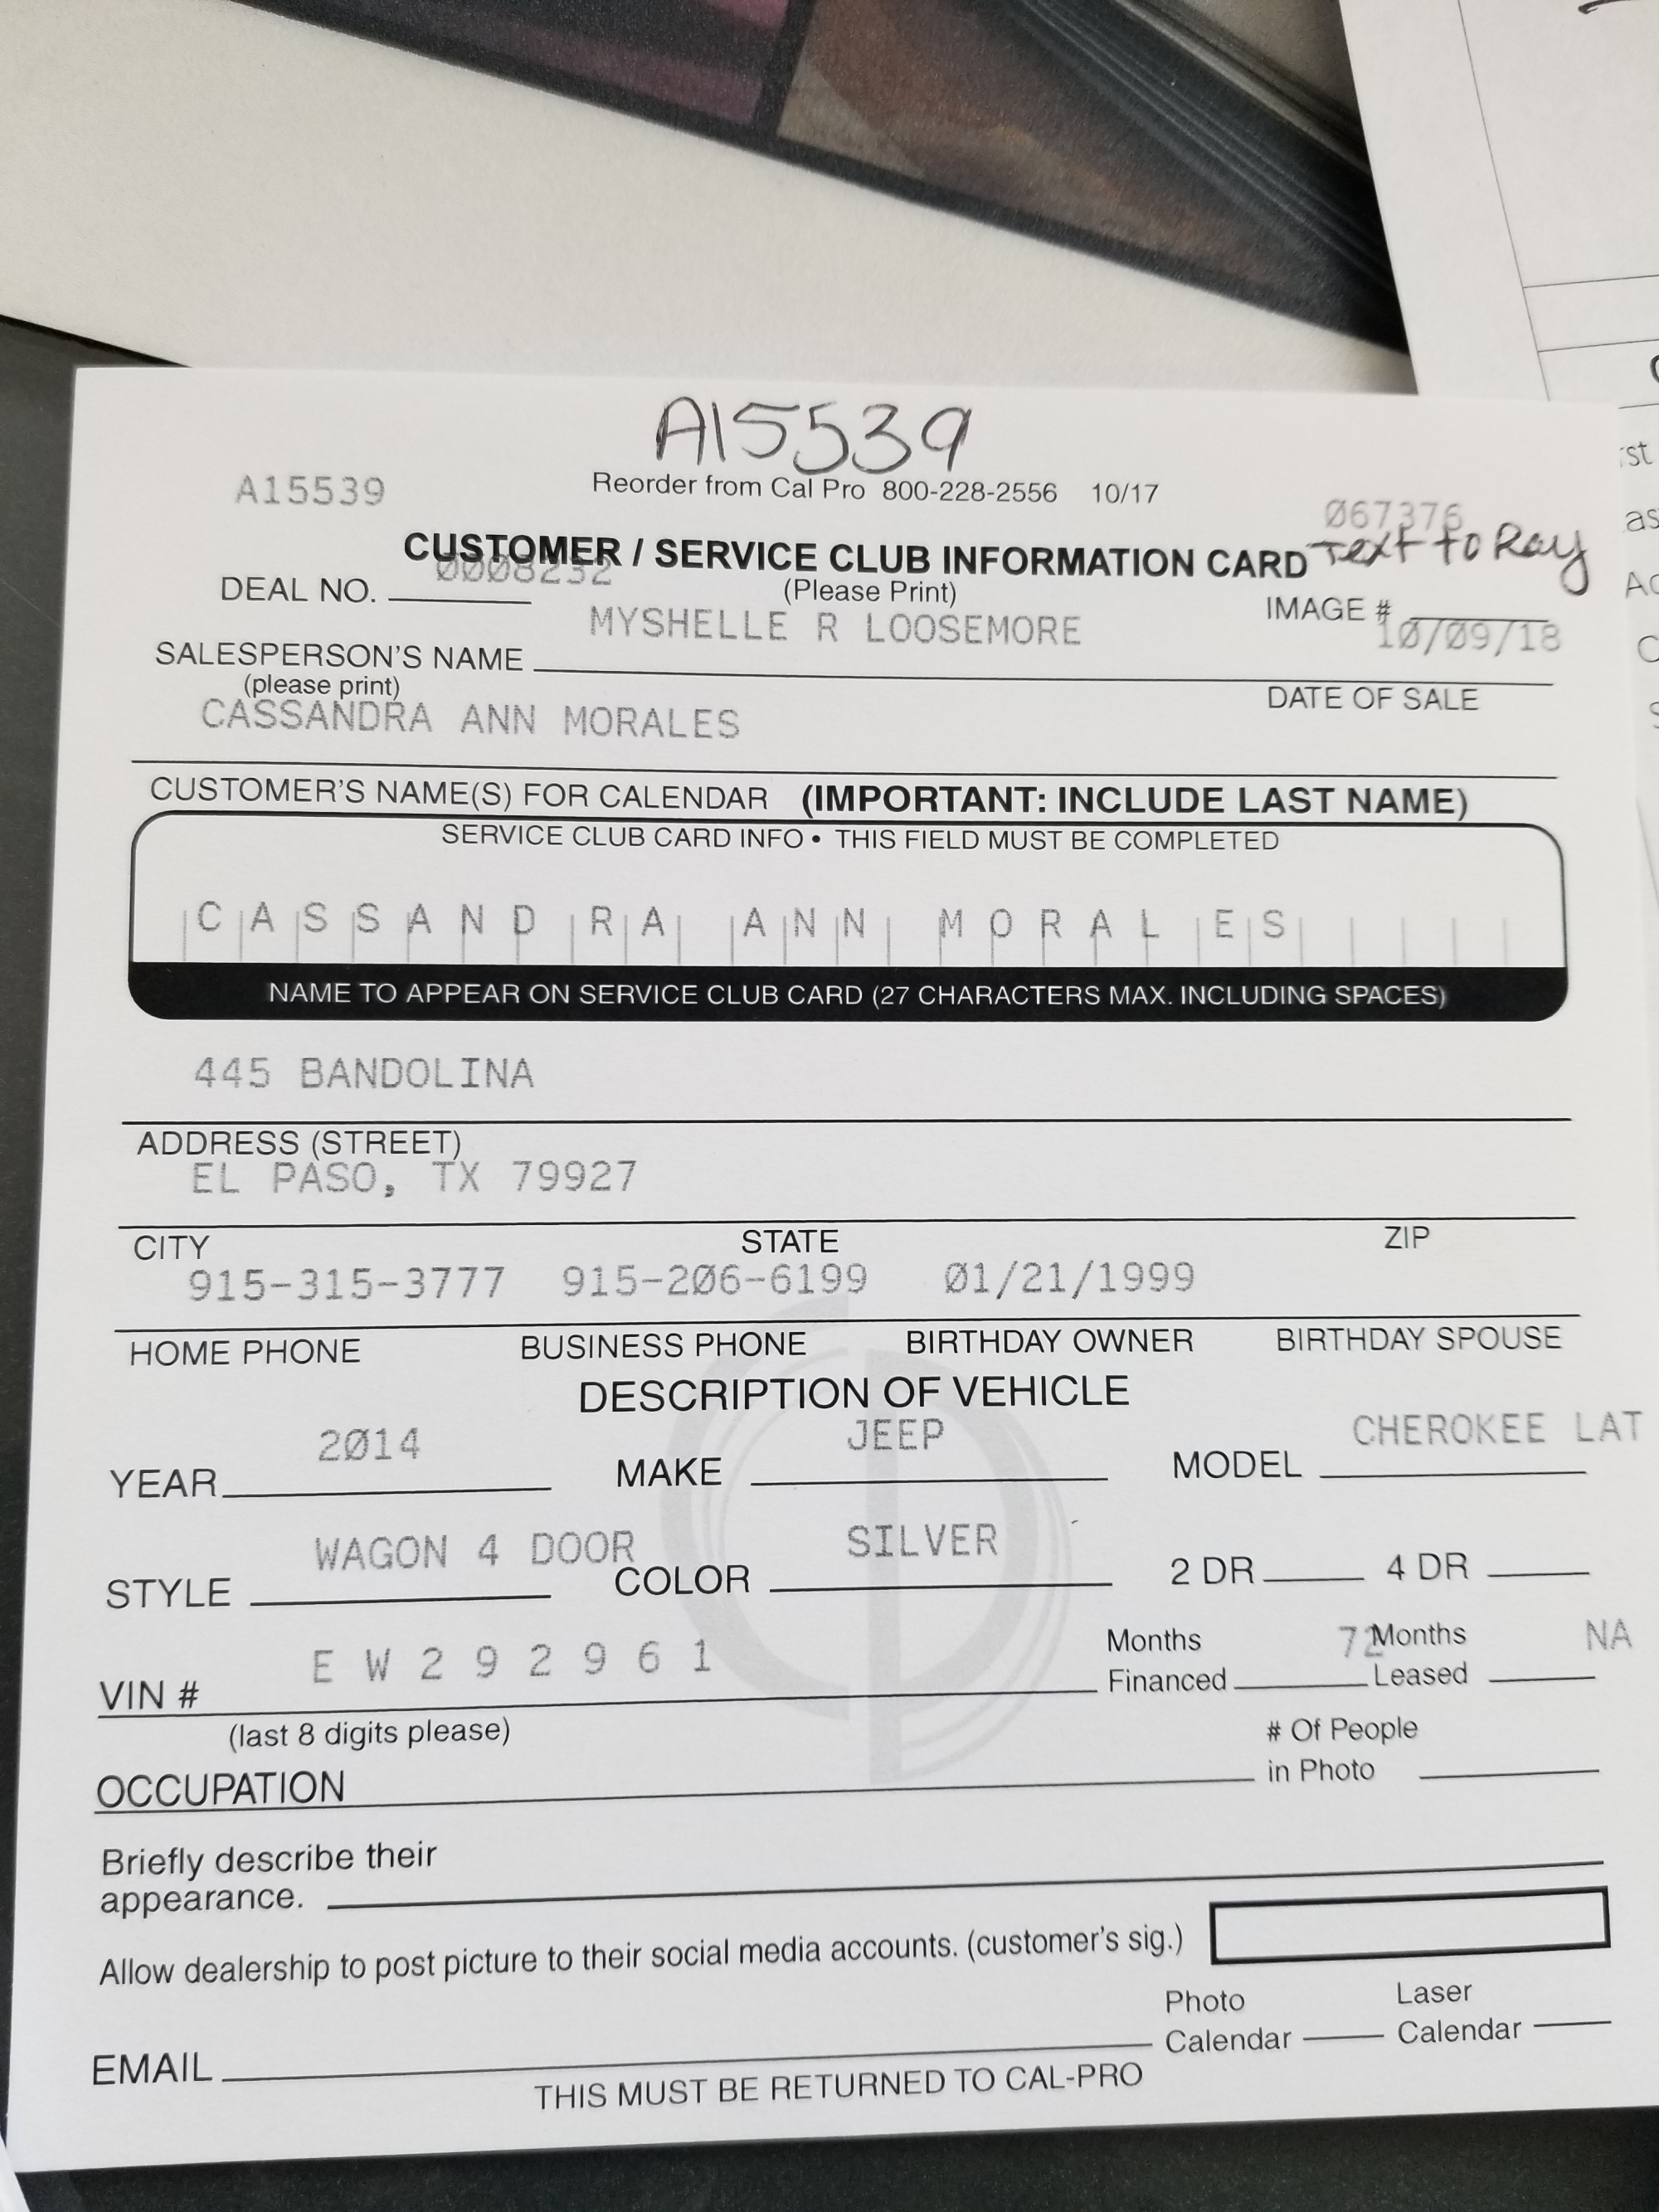 A15539
A15539 Reorder from Cal Pro 800-228-2556 10/17
067376
CUSTOMER / SERVICE CLUB INFORMATION CARD Text to Ray
0008232
DEAL NO. (Please Print) IMAGE #
MYSHELLE R LOOSEMORE 10/09/18
SALESPERSON'S NAME
(please print) DATE OF SALE
CASSANDRA ANN MORALES
CUSTOMER'S NAME(S) FOR CALENDAR (IMPORTANT: INCLUDE LAST NAME)
SERVICE CLUB CARD INFO • THIS FIELD MUST BE COMPLETED
CASSANDRA ANN MORALES
NAME TO APPEAR ON SERVICE CLUB CARD (27 CHARACTERS MAX. INCLUDING SPACES)
445 BANDOLINA
ADDRESS (STREET)
EL PASO, TX 79927
CITY STATE ZIP
915-315-3777 915-206-6199 01/21/1999
HOME PHONE BUSINESS PHONE BIRTHDAY OWNER BIRTHDAY SPOUSE
DESCRIPTION OF VEHICLE
2014 JEEP CHEROKEE LAT
YEAR MAKE MODEL
WAGON 4 DOOR SILVER
STYLE COLOR 2 DR 4 DR
E W 2 9 2 9 6 1 Months 72 Months NA
VIN # Financed Leased
(last 8 digits please) # Of People
OCCUPATION in Photo
Briefly describe their
appearance.
Allow dealership to post picture to their social media accounts. (customer's sig.)
Photo Laser
EMAIL Calendar Calendar
THIS MUST BE RETURNED TO CAL-PRO